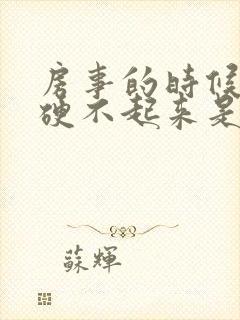 房事的時候
硬不起来是
蘇輝